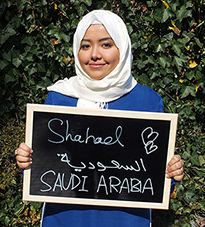 Shahad
السعودية
SAUDI ARABIA